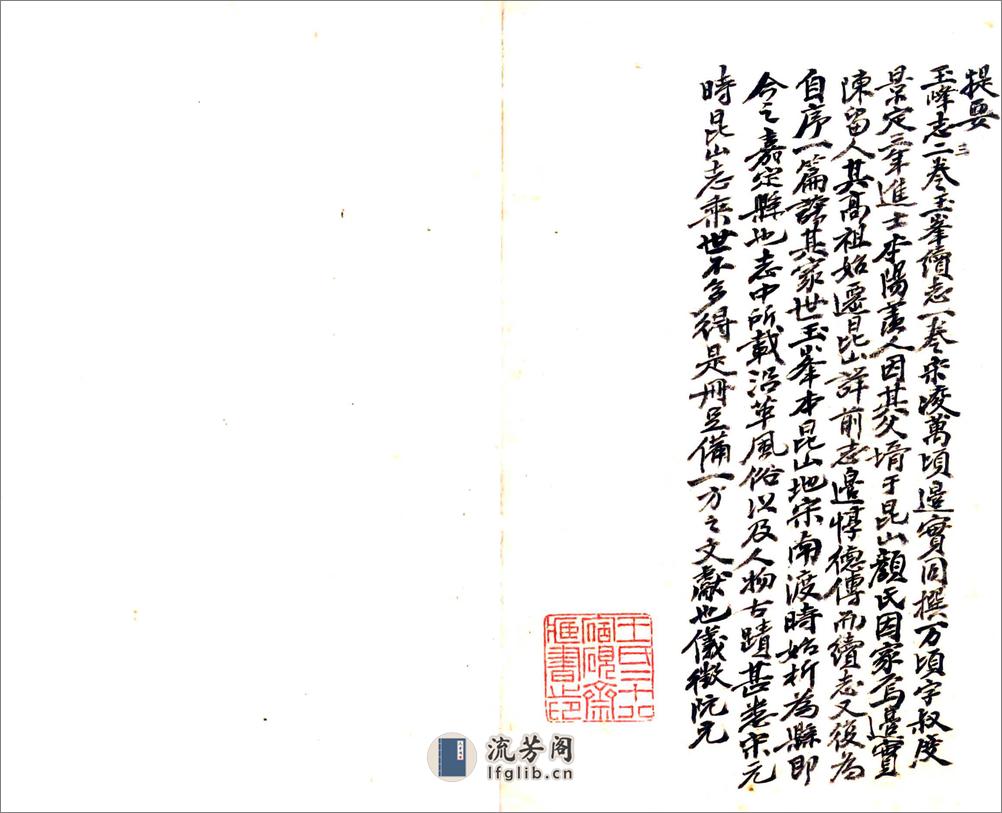 提要
玉峰志三卷玉峯續志一卷宋凌萬頃邊實同撰万頃字叔度
景定三年進士本陽羨人因其父壻于昆山顏氏因家焉邊實
陳留人其高祖始遷昆山詳前志邊惇德傳而續志又後為
自序一篇詳其家世玉峯本昆山地宋南渡時始析為縣即
今之嘉定縣也志中所載沿革風俗以及人物古蹟甚悉宋元
時昆山志乘世不多得是冊足備一方之文獻也儀徵阮元
王氏二十八
宿硯齋
藏書印
流芳阁
lfglib.cn